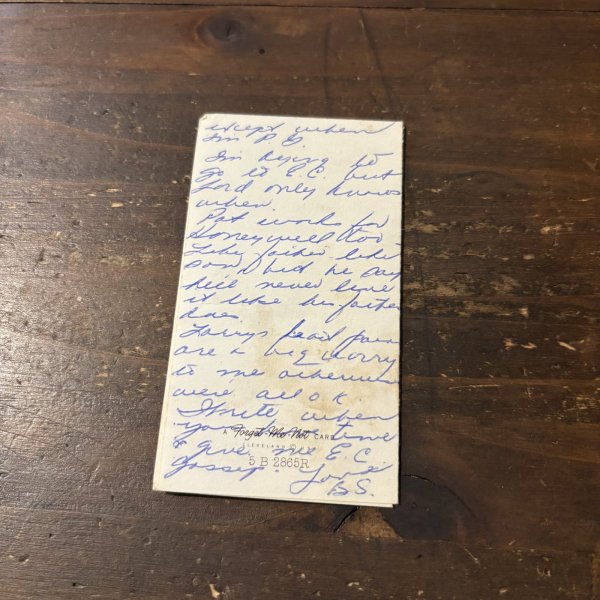 except when
I'm P G
I'm trying to
go to E.C. but
Lord only knows
when.
Pat works for
Honeywell too
Like father like
son but he say
he'll never love
it like his father
does
Larrys head pain
are a big worry
to me otherwise
were all O K.
Write when
you have time
A Forget Me Not CARD
CLEVELAND
& give me E.C
5 B 2865R
gossip. Love
B S.